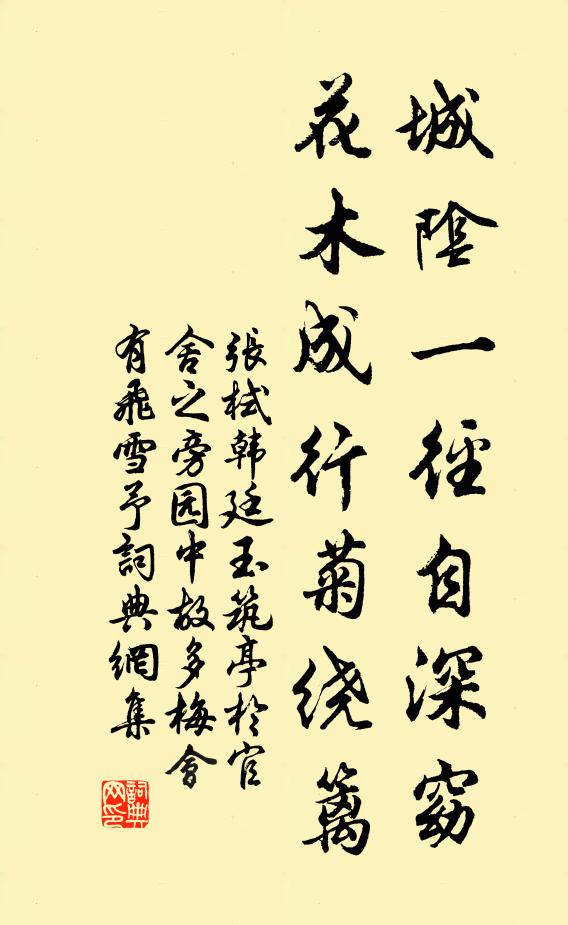 城陰一徑自深窈
花木成行菊绕篱
張栻韩廷玉筑亭於官
舍之旁园中故多梅會
有飛雪予詞典網集
詞典
网印